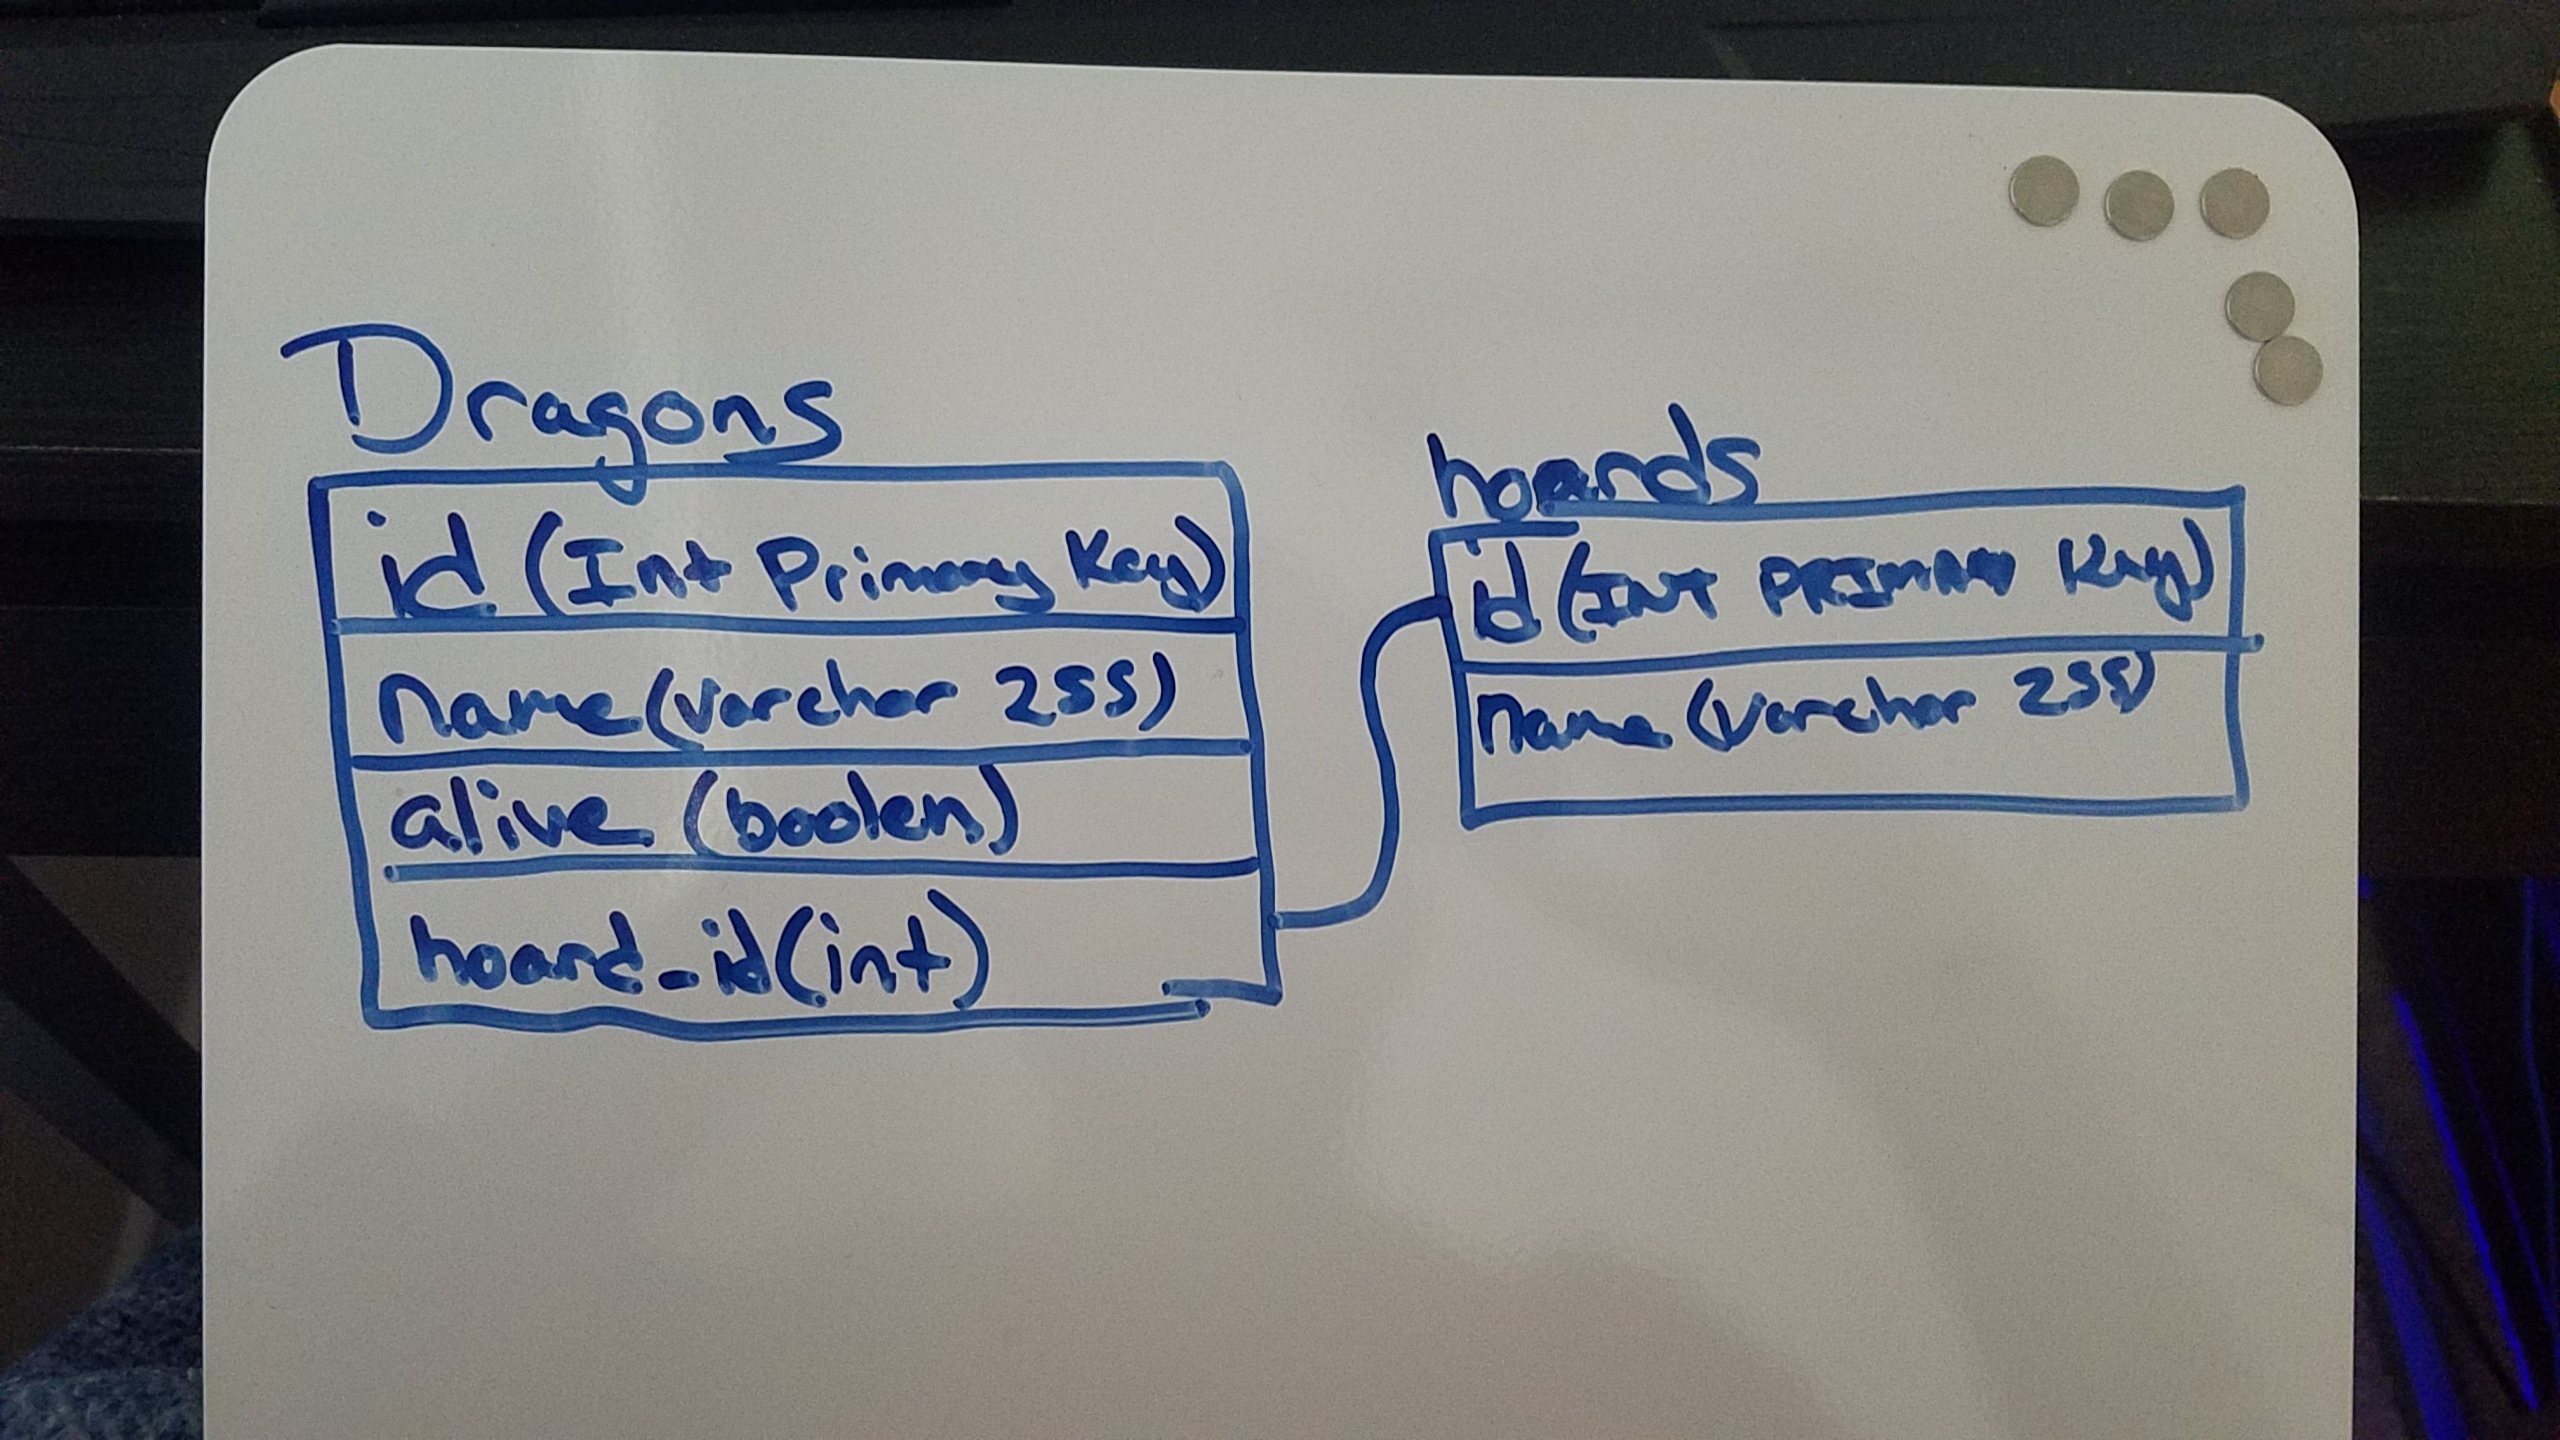 Dragons
id (Int Primary Key)
name (varchar 255)
alive (boolen)
hoard_id (int)
hoards
id (INT PRIMARY Key)
name (varchar 255)